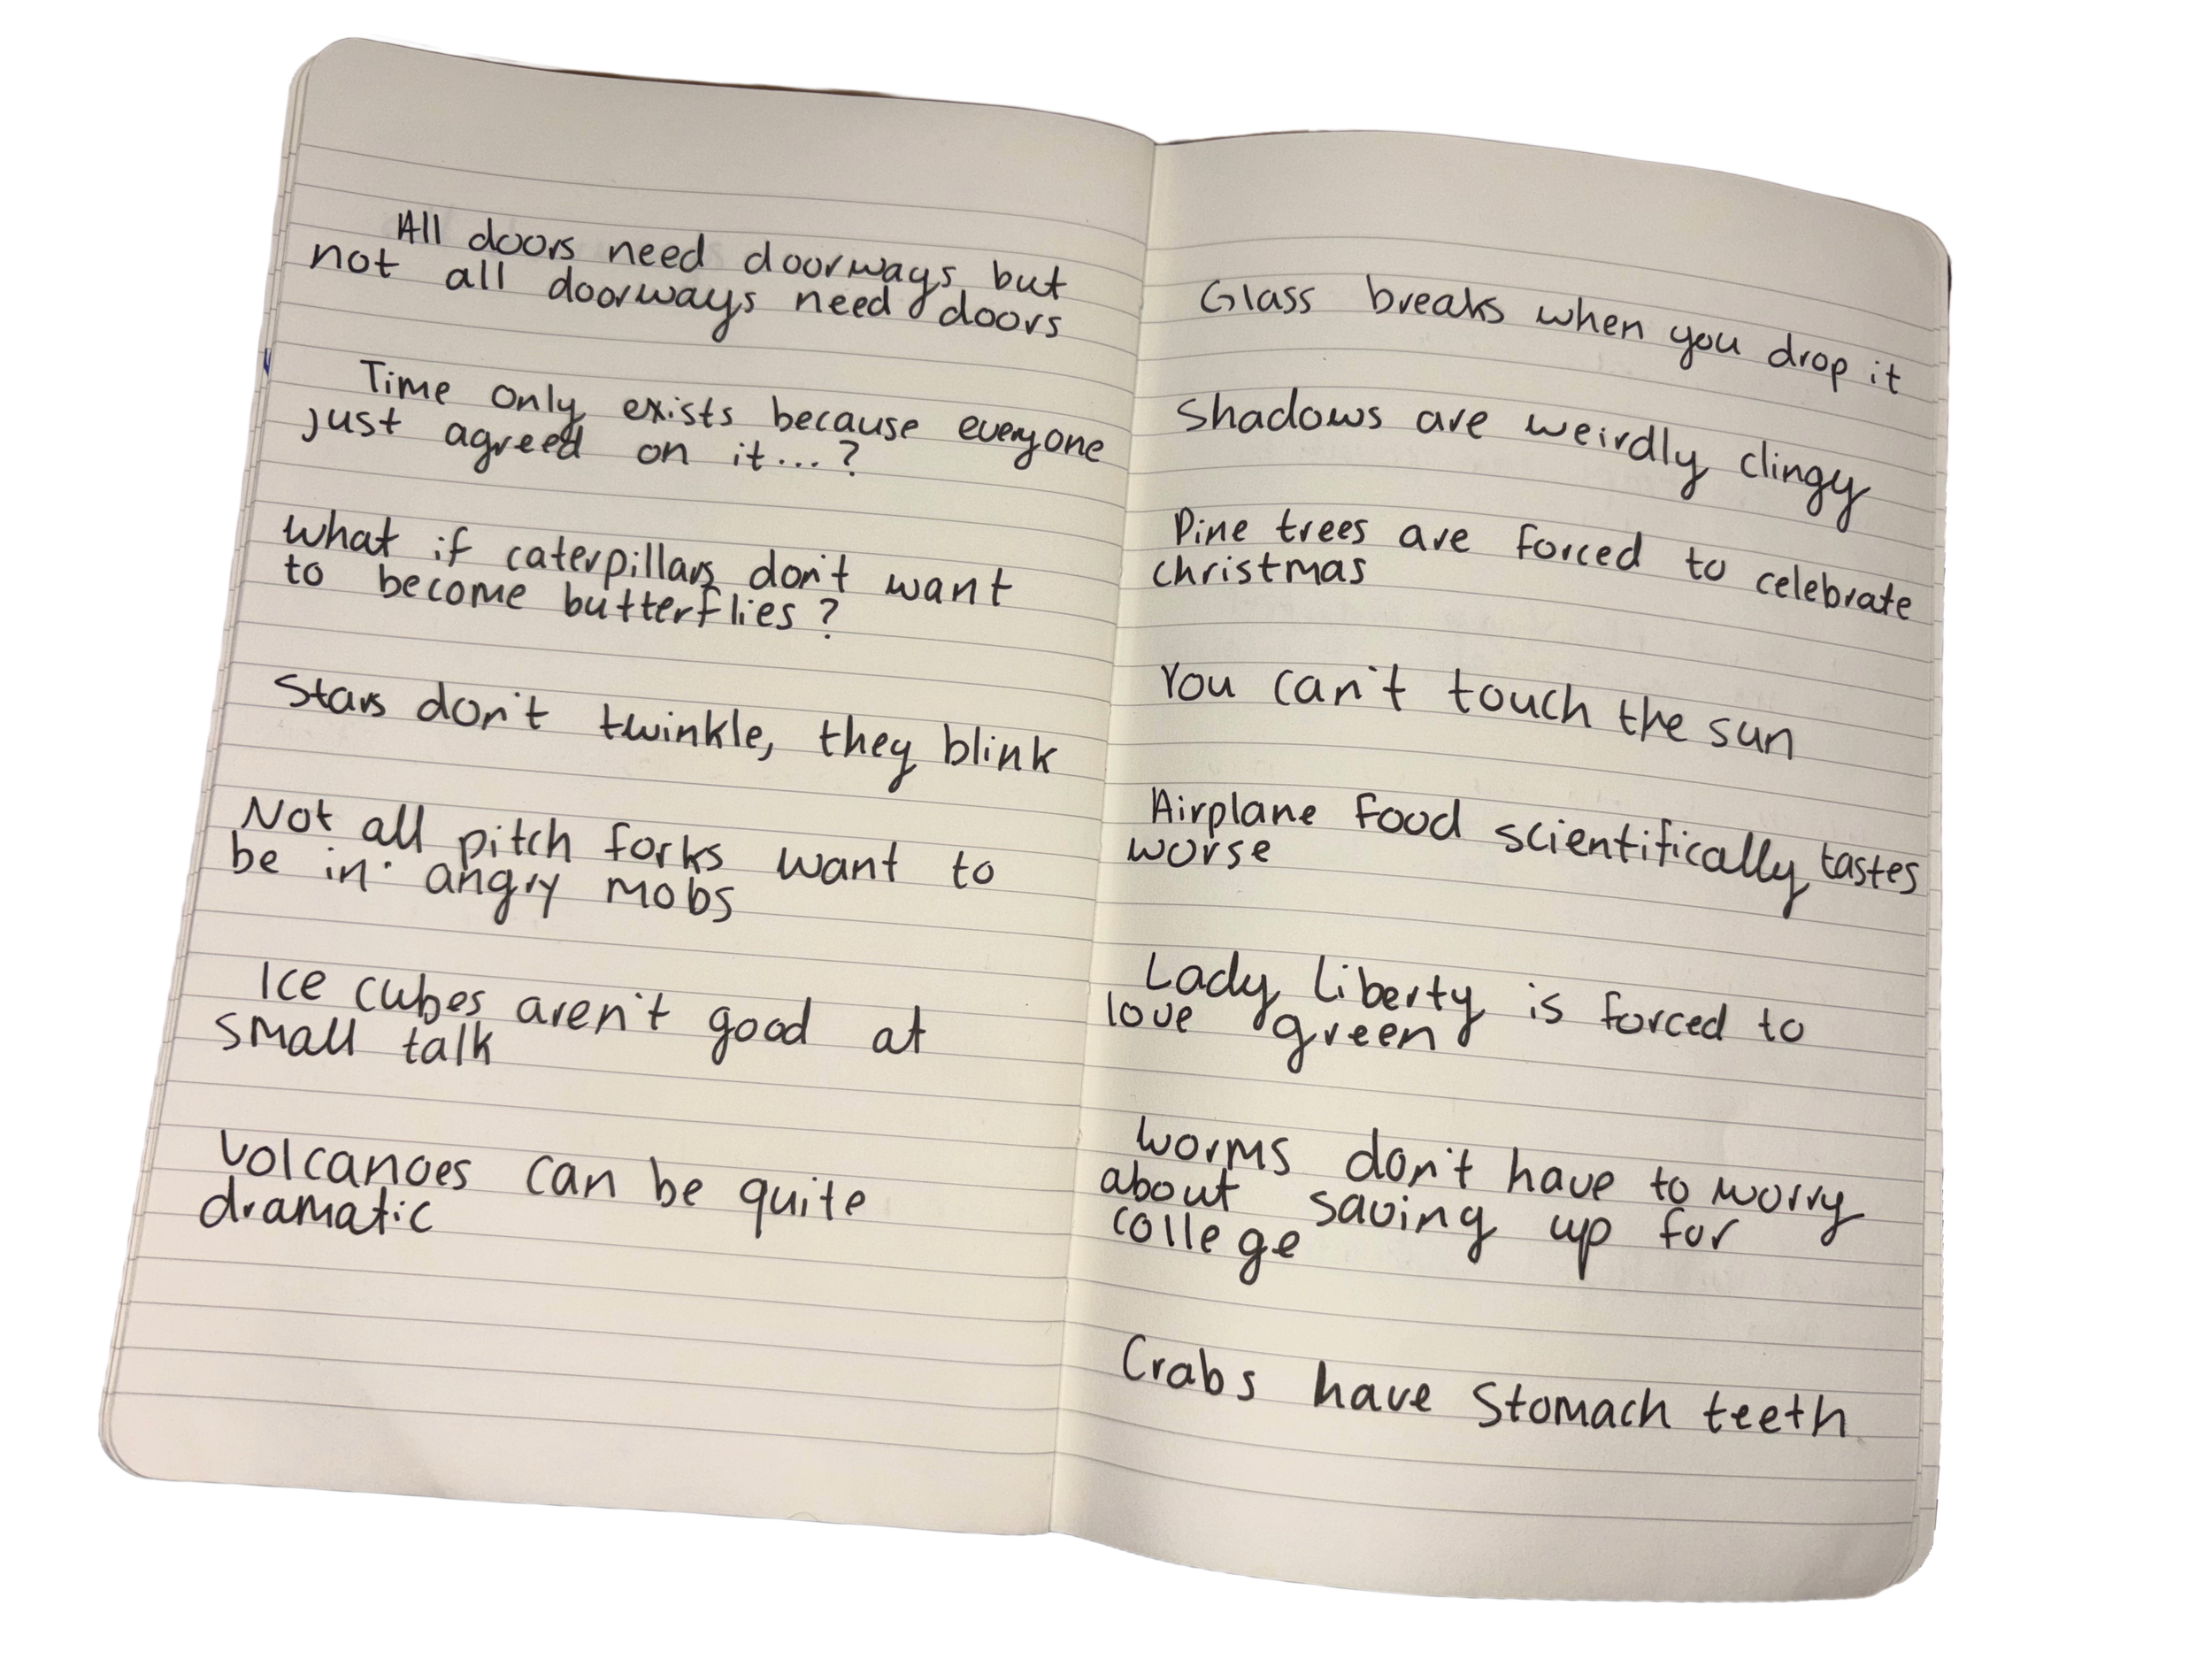 All doors need doorways but
not all doorways need doors
Time only exists because everyone
just agreed on it...?
What if caterpillars don't want
to become butterflies?
Stars don't twinkle, they blink
Not all pitch forks want to
be in angry mobs
Ice cubes aren't good at
small talk
Volcanoes can be quite
dramatic
Glass breaks when you drop it
Shadows are weirdly clingy
Pine trees are forced to celebrate
christmas
You can't touch the sun
Airplane food scientifically tastes
worse
Lady liberty is forced to
love green
Worms don't have to worry
about saving up for
college
Crabs have stomach teeth